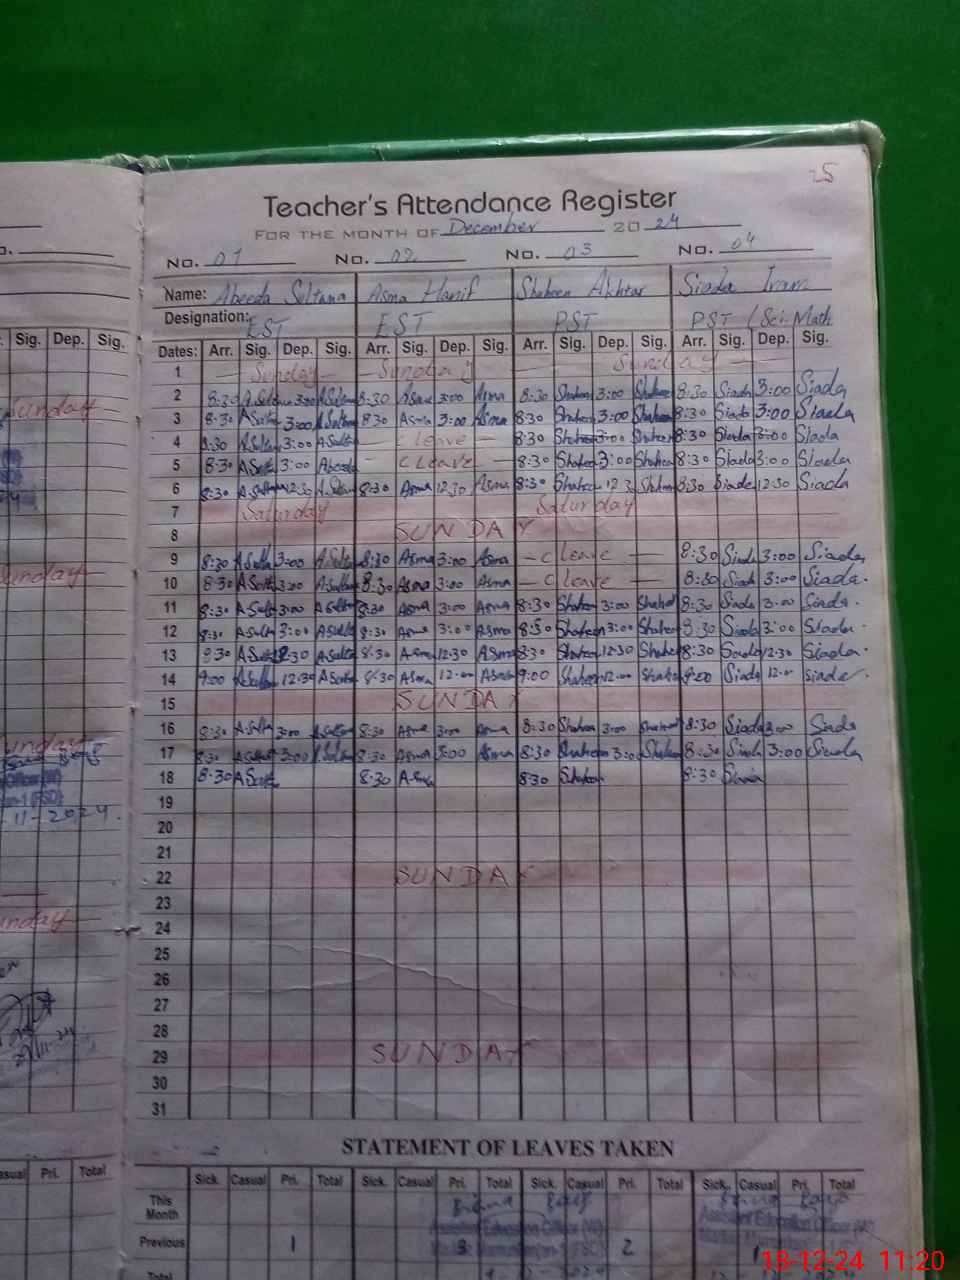 25
Teacher's Attendance Register
FOR THE MONTH OF December 20 24
No. 01 No. 02 No. 03 No. 04
Name: Abeeda Sultana Asma Hanif Shaheen Akhtar Siada Iram
Designation: EST EST PST PST (Sci. Math
Sig. Dep. Sig. Dates: Arr. Sig. Dep. Sig. Arr. Sig. Dep. Sig. Arr. Sig. Dep. Sig. Arr. Sig. Dep. Sig.
1 Sunday Sunday Sunday
2 8:30 A.Sultana 3:00 A.Sultana 8:30 Asma 3:00 Asma 8:30 Shaheen 3:00 Shaheen 8:30 Siada 3:00 Siada
3 8:30 A Sultan 3:00 A Sultan 8:30 Asma 3:00 Asma 8:30 Shaheen 3:00 Shaheen 8:30 Siada 3:00 Siada
4 8:30 A Sulta 3:00 A Sulta - C Leave - 8:30 Shaheen 3:00 Shaheen 8:30 Siada 3:00 Siada
5 8:30 A Sulta 3:00 Abeeda - C Leave - 8:30 Shaheen 3:00 Shaheen 8:30 Siada 3:00 Siada
6 8:30 A Sultana 12:30 A Sultan 8:30 Asma 12:30 Asma 8:30 Shaheen 12:3 Shaheen 8:30 Siada 12:30 Siada
7 Saturday Saturday
8 SUNDAY
9 8:30 A Sulta 3:00 A.Sulta 8:30 Asma 3:00 Asma - C Leave - 8:30 Siada 3:00 Siada
10 8:30 A Sulta 3:00 A.Sultan 8:30 Asma 3:00 Asma - C Leave - 8:30 Siada 3:00 Siada.
11 8:30 A Sulta 3:00 A Sultan 8:30 Asma 3:00 Asma 8:30 Shaheen 3:00 Shaheen 8:30 Siada 3:00 Siada.
12 8:30 A Sulta 3:00 A Sulta 8:30 Asma 3:00 Asma 8:30 Shaheen 3:00 Shaheen 8:30 Siada 3:00 Siada
13 8:30 A Sulta 12:30 A Sulta 8:30 Asma 12:30 Asma 8:30 Shaheen 12:30 Shaheen 8:30 Siada 12:30 Siada.
14 9:00 A Sulta 12:30 A Sulta 8:30 Asma 12:00 Asma 9:00 Shaheen 12:00 Shaheen 9:00 Siada 12:00 Siada.
15 SUNDAY
16 8:30 A Sulta 3:00 A Sultan 8:30 Asma 3:00 Asma 8:30 Shaheen 3:00 Shaheen 8:30 Siada 3:00 Siada
17 8:30 A Sulta 3:00 A Sultan 8:30 Asma 3:00 Asma 8:30 Shaheen 3:00 Shaheen 8:30 Siada 3:00 Siada
18 8:30 A Sulta 8:30 Asma 8:30 Shaheen 8:30 Siada
19
20
21
22 SUNDAY
23
24
25
26
27
28
29 SUNDAY
30
31
STATEMENT OF LEAVES TAKEN
Casual Pri. Total Sick. Casual Pri. Total Sick. Casual Pri. Total Sick. Casual Pri. Total Sick. Casual Pri. Total
This Month
Assistant Education Officer (W) Assistant Education Officer (W)
Previous 1 3 2 1
Total
18-12-24 11:20